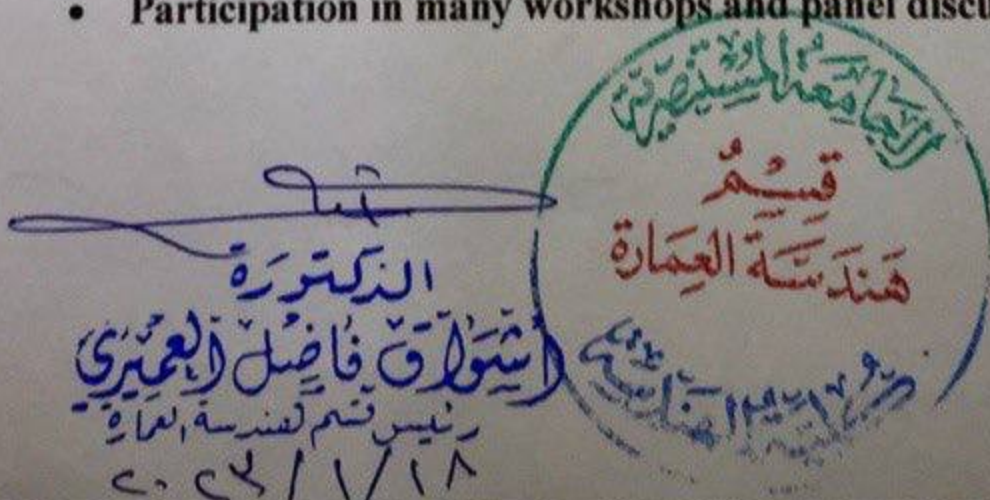 • Participation in many workshops and panel discu
الجامعة المستنصرية
قسم
هندسة العمارة
كلية الهندسة
الدكتورة
أشواق فاضل العميري
رئيس قسم هندسة العمارة
٢٠٢٣/١/١٨